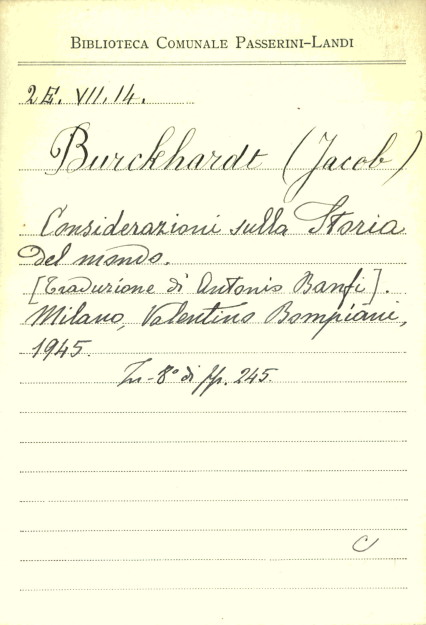 BIBLIOTECA COMUNALE PASSERINI-LANDI
2E. VII. 14.
Burckhardt (Jacob)
Considerazioni sulla Storia
del mondo.
[Traduzione di Antonio Banfi].
Milano, Valentino Bompiani,
1945.
In-8° di pp. 245.
C